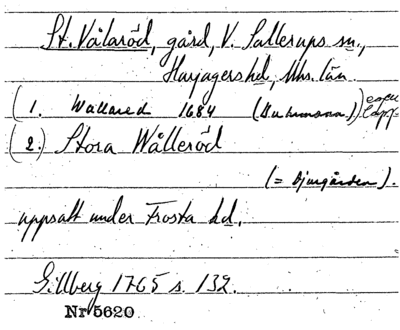 St. Vålaröd, gård, V. Sallerups sn.,
Harjagers hd, Mhs. län.
(1. Wallared 1684 (Buhrmann.))
(2.) Stora Wålleröd
(= Djurgården).
uppsatt under Frosta hd.
Gillberg 1765 s. 132.
Nr 5620